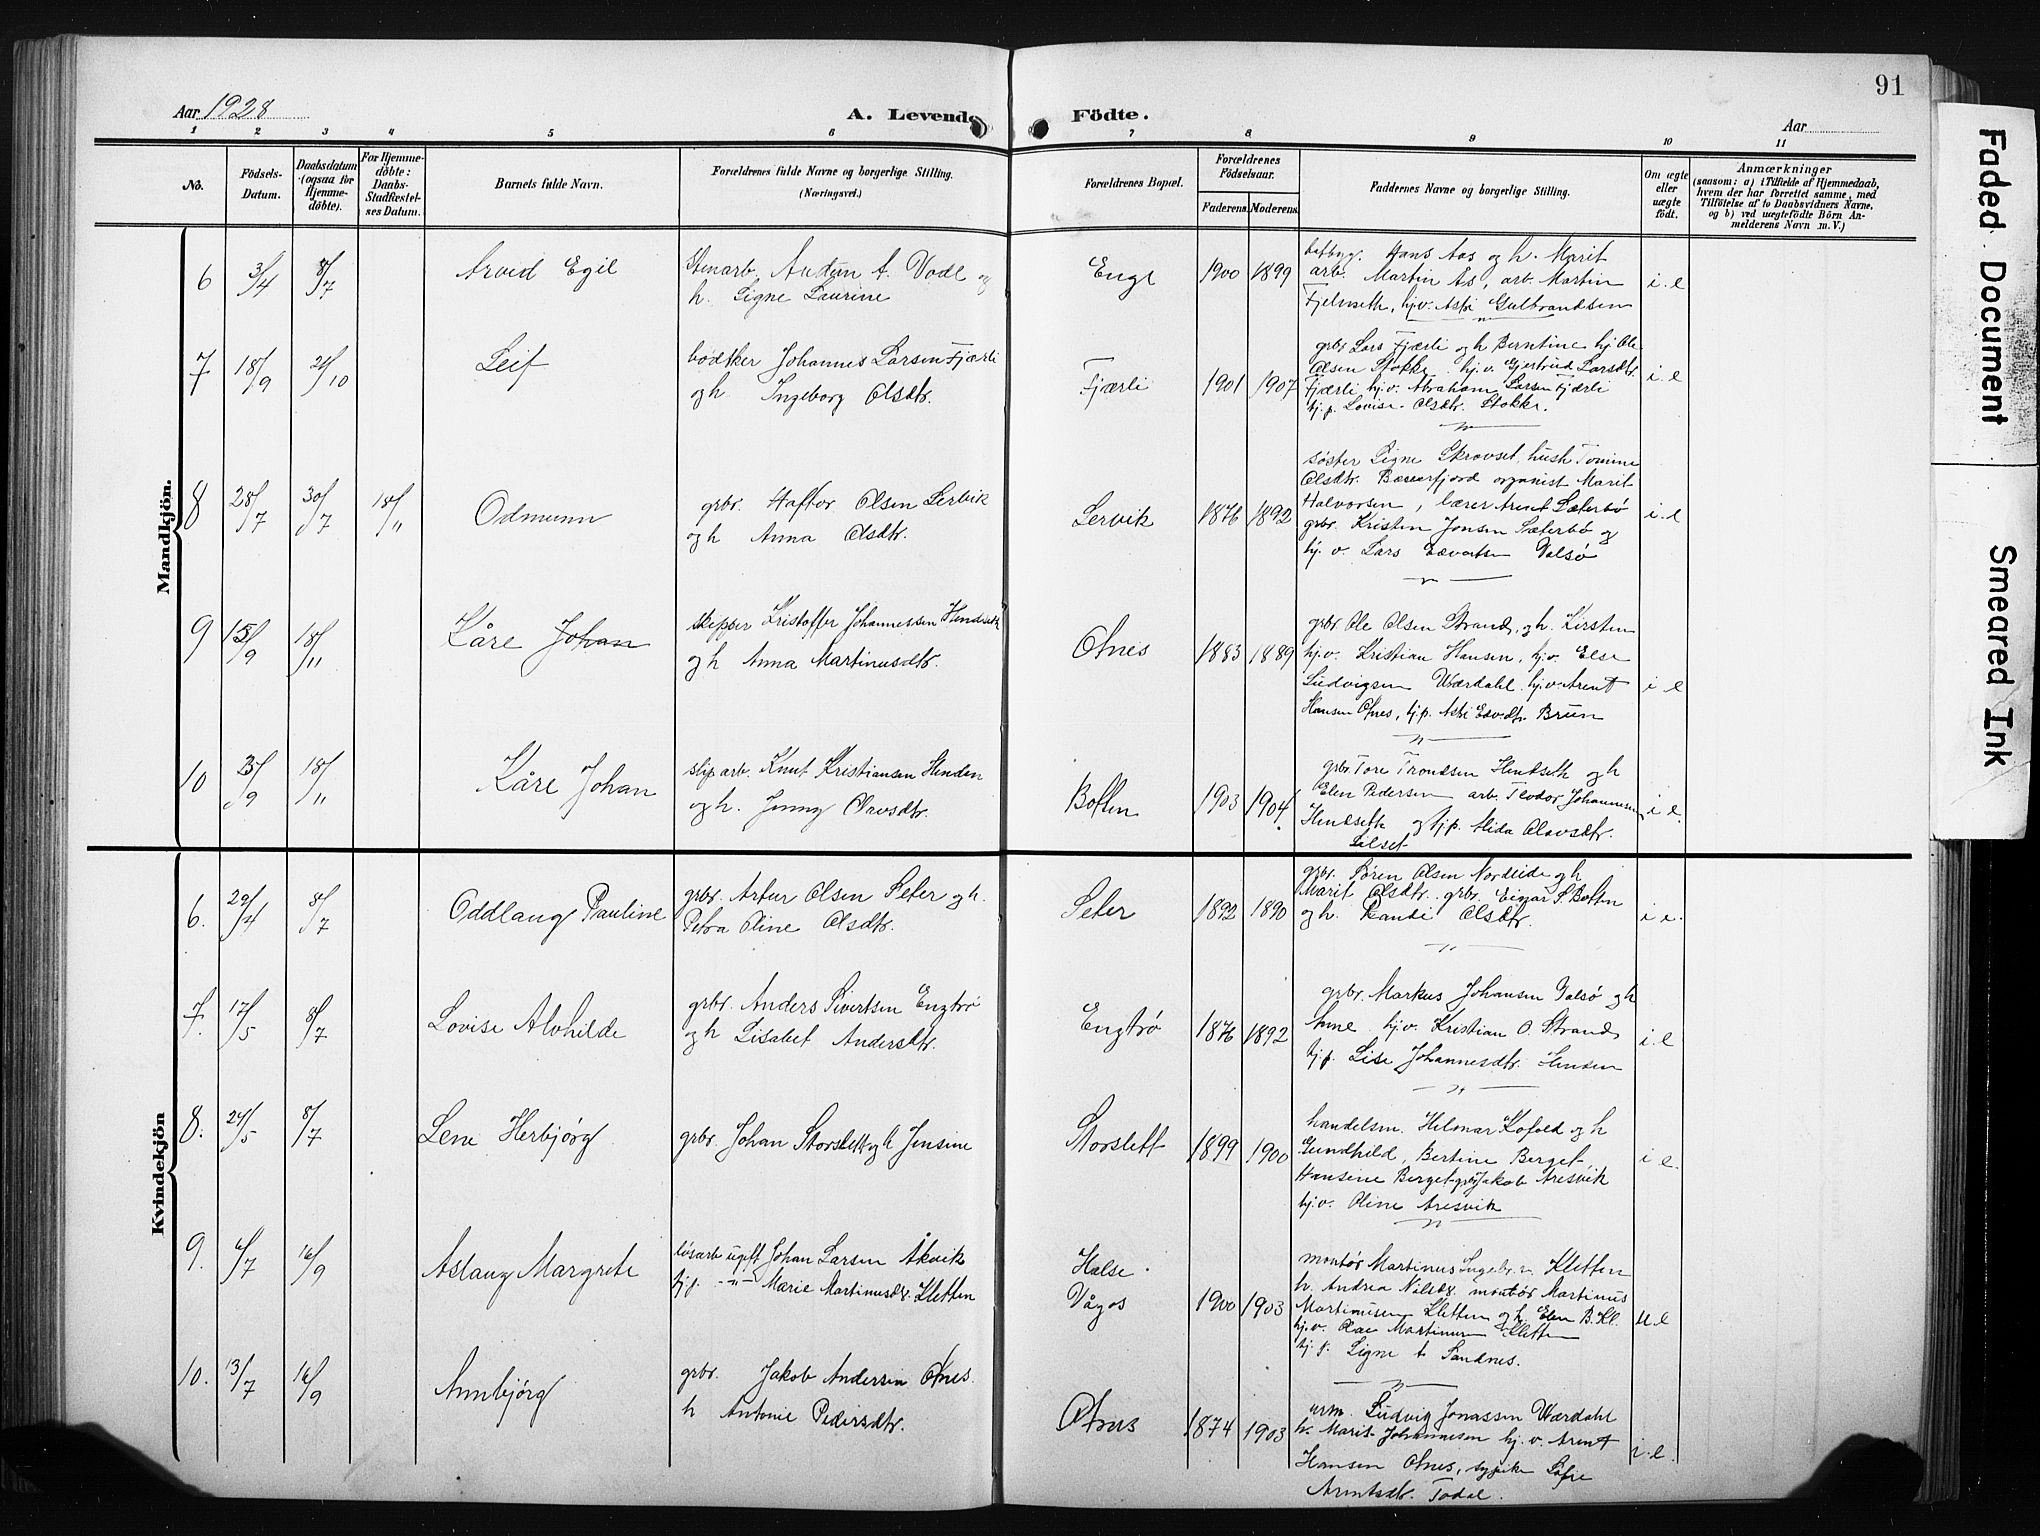 91
Aar 1928
A. Levende Födte.
Aar
1 2 3 4 5 6 7 8 9 10 11
No.
Födsels-Datum.
Daabsdatum (ogsaa for Hjemme-döbte).
For Hjemme-döbte: Daabs-Stadfæstel-ses Datum.
Barnets fulde Navn.
Forældrenes fulde Navne og borgerlige Stilling.
(Næringsvei.)
Forældrenes Bopæl.
Forældrenes Födselsaar.
Faderens. Moderens.
Faddernes Navne og borgerlige Stilling.
Om ægte eller uægte födt.
Anmærkninger
(saasom: a) i Tilfælde af Hjemmedaab,
hvem der har forrettet samme, med
Tilföielse af to Daabsvidners Navne,
og b) ved uægtefödte Börn An-
melderens Navn m. V.)
Mandkjön.
6 3/4 8/7 Arvid Egil
Stenarb. Audun A. Vodl og
h. Signe Laurine
Enge 1900 1899
Hans Aas og h. Marit
arb. Martin As, arb. Martin
Fjelnseth, hj.v. Astri Gulbrandsen
i.e
7 18/9 21/10 Leif
bødtker Johannes Larsen Fjærli
og h. Ingeborg Olsdtr.
Fjærli 1901 1907
grbr Lars Fjærli og h Berntine hj Ole
Olsen Stokke hj.v. Gjertrud Larsdtr.
Fjærli hj.v. Abraham Larsen Fjærli
hj.p. Lovise Olsdtr. Stokke.
i.e
8 28/7 30/7 18/11 Odmunn
grbr. Haftor Olsen Servik
og h Anna Olsdtr.
Servik 1876 1892
søster Signe Skrovset, hush Tomine
Olsdtr. Bæverfjord organist Marit
Halvorsen, lærer Arent Sæterbø
grbr. Kristen Jonsen Sæterbø og
hj.v. Lars Edvartsen Valsø
i.e
9 15/9 18/11 Kåre Johan
skipper Kristoffer Johannessen Hendseth
og h Anna Martinusdtr.
Otnes 1883 1889
grbr. Ole Olsen Strand, og h. Kirsten
hj.v. Kristian Hansen, hj.v. Else
Ludvigsen Værdahl, hj.v. Arent
Hansen Otnes, hj.p. Astri Edv.dtr. Brun
i e
10 3/9 18/11 Kåre Johan
sliparb. Knut Kristiansen Henden
og h. Jenny Olavsdtr.
Botten 1903 1904
grbr. Tore Trondsen Hendseth og h
Elen Pedersen arb. Teodor Johannesen
Hendseth og hj.p. Alida Olavsdtr.
Lilset
i e.
Kvindekjön
6. 29/4 8/7 Oddlaug Pauline
grbr. Artur Olsen Seter og h.
Petra Oline Olsdtr.
Seter 1892 1890
grbr. Søren Olsen Nordlide og h
Marit Olsdtr. grbr. Einar S. Botten
og h. Randi Olsdtr.
i e.
7. 17/5 8/7 Lovise Alvhilde
grbr. Anders Sivertsen Engtrø
og h Lisabet Andersdtr.
Engtrø 1876 1892
grbr. Markus Johansen Valsø og h
Anne hj.v. Kristian O. Strand
hj.p. Lise Johannesdtr. Hensen
i.e
8. 24/5 8/7 Lene Herbjørg
grbr. Johan Storslett og h Jensine
Storslett 1899 1900
handelsm. Helmar Kofoed og h
Gundhild, Bertine Berget
Hansine Berget grbr Jakob Aresvik
hj.v. Oline Aresvik
i e.
9. 6/7 16/9 Aslaug Margrete
løsarb ugift Johan Larsen Åkvik
hj.p. -"- Marie Martinusdtr. Kletten
Halse.
Vågos 1900 1903
montør Martinus Kletten
h. Andrea Nilsdtr. montør Martinus
Martinusen Kletten og h. Elen B. Kl.
hj.v. Olav Martinusen Kletten
hj.p. Signe A Sandnes.
u e
10. 13/7 16/9 Annbjørg
grbr. Jakob Andersen Otnes.
h Antonie Pedersdtr.
Otnes 1874 1903
Ludvig Jonassen Værdahl
h. Marit Johannesen hj.v. Arent
Hansen Otnes, sypike Sofie
Arentsdtr. Todal.
i.e.
Faded Document
Smeared Ink